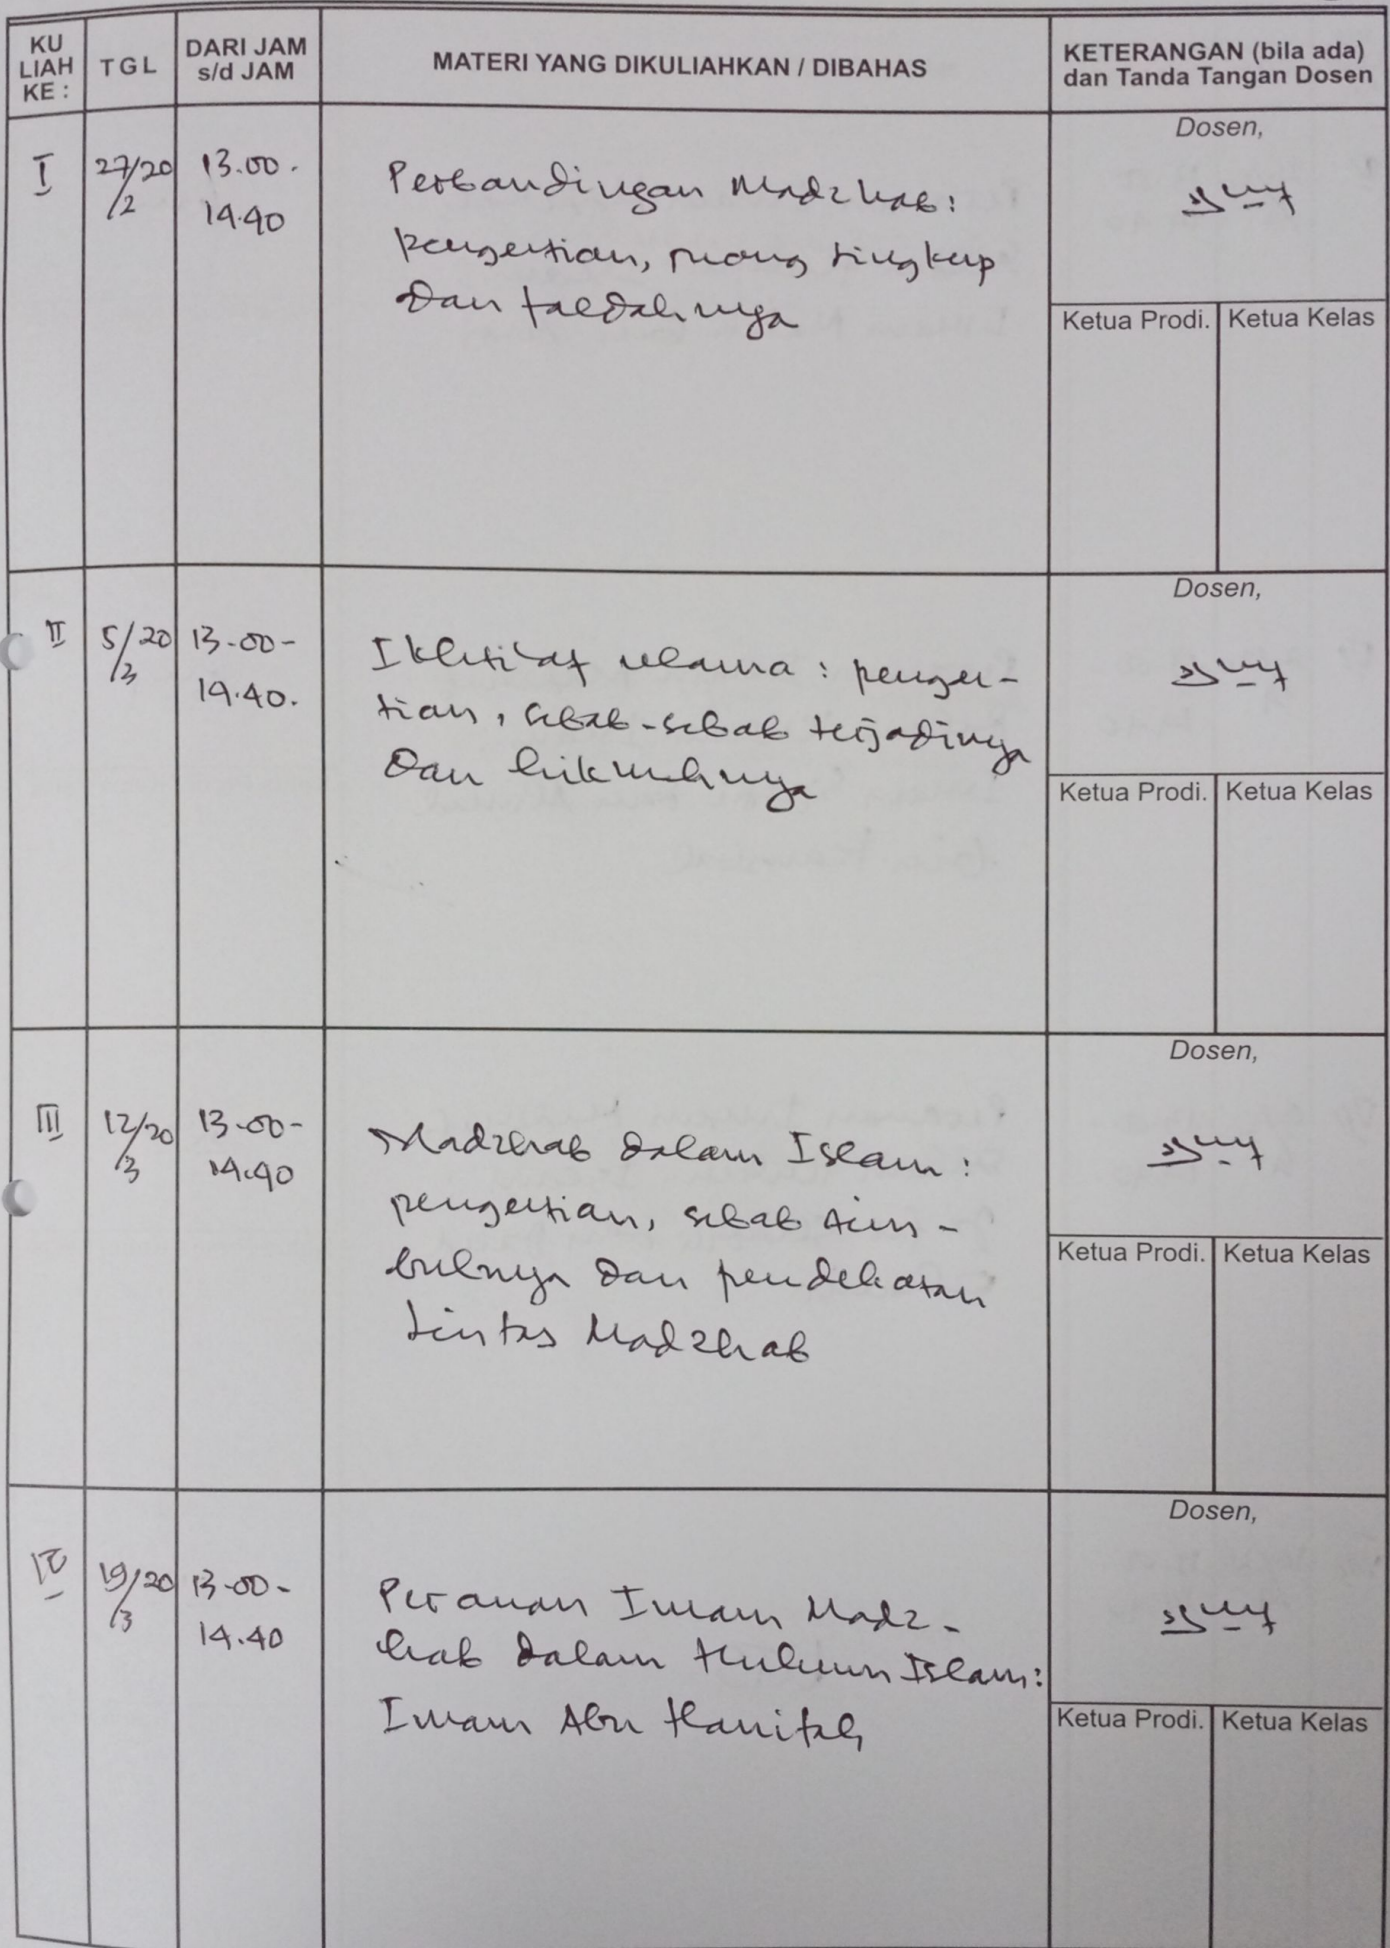 KU LIAH KE :
TGL
DARI JAM s/d JAM
MATERI YANG DIKULIAHKAN / DIBAHAS
KETERANGAN (bila ada) dan Tanda Tangan Dosen
I
27/20
/2
13.00.
14.40
Perbandingan Madzhab:
pengertian, ruang lingkup
dan faedahnya
Dosen,
Ketua Prodi.
Ketua Kelas
II
5/20
/3
13-00-
14.40.
Ikhtilaf ulama : penger-
tian, sebab-sebab terjadinya
dan hikmahnya
Dosen,
Ketua Prodi.
Ketua Kelas
III
12/20
/3
13-00-
14.40
Madzhab dalam Islam :
pengertian, sebab tim-
bulnya dan pendekatan
Lintas Madzhab
Dosen,
Ketua Prodi.
Ketua Kelas
IV
19/20
/3
13-00-
14.40
Peranan Imam Madz-
hab dalam Hukum Islam:
Imam Abu Hanifah
Dosen,
Ketua Prodi.
Ketua Kelas